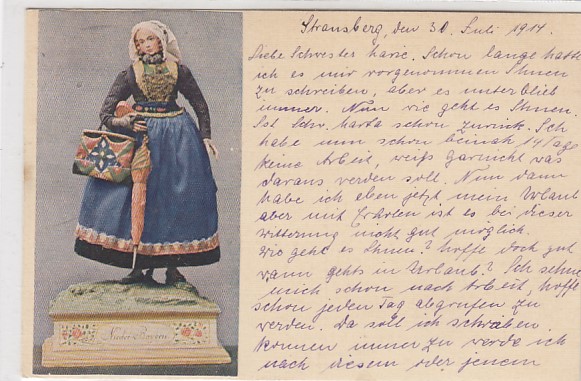 Strausberg, den 30. Juli 1914.
Liebe Schwester Marie. Schon lange hatte
ich es mir vorgenommen Ihnen
zu schreiben, aber es unterblieb
immer. Nun wie geht es Ihnen.
Ist Schw. Marta schon zurück. Ich
habe nun schon beinah 14 Tage
keine Arbeit, weiß garnicht was
daraus werden soll. Nun dann
habe ich eben jetzt mein Urlaub
aber mit ist es bei dieser
Witterung nicht gut möglich.
Wie geht es Ihnen? hoffe doch gut
wann gehts in Urlaub? Ich sehne
mich schon nach Arbeit, hoffe
schon jeden Tag abgerufen zu
werden. Da soll ich schreiben
kommen immer zu werde ich
nach diesem oder jenem
Nieder-Bayern